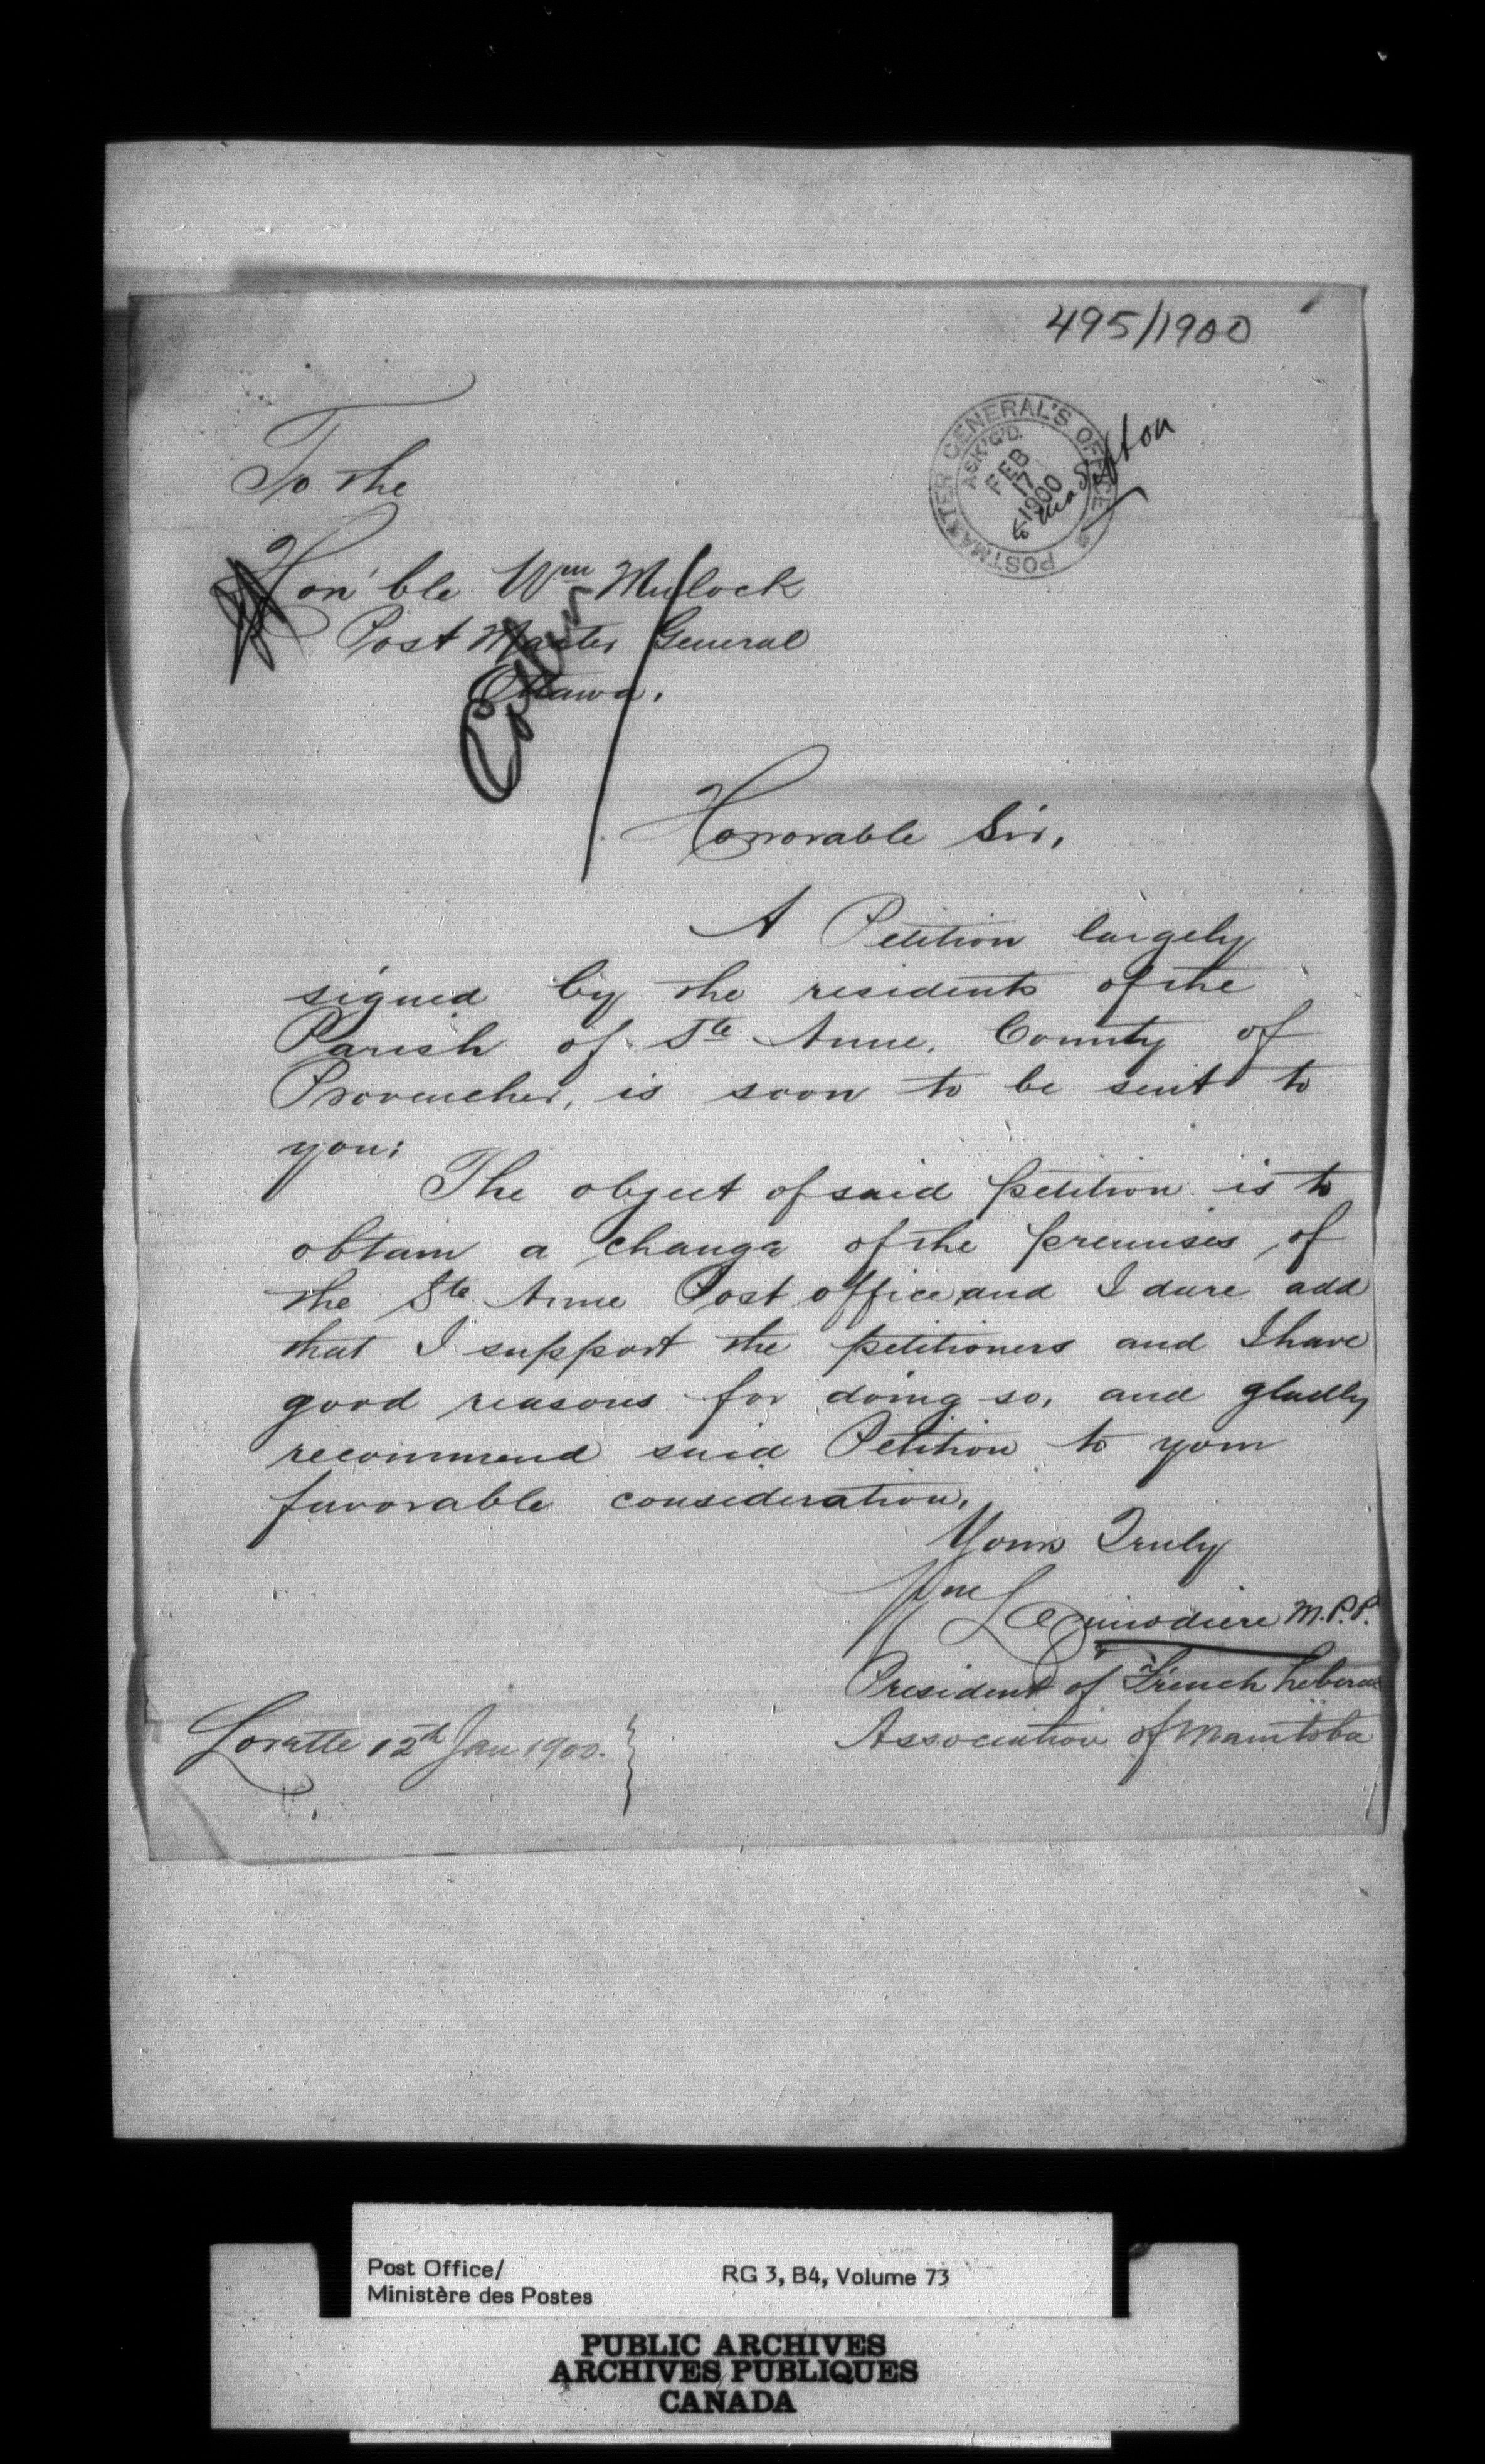 495/1900
POSTMASTER GENERAL'S OFFICE
ASK'G'D.
FEB
17
1900
To the
Hon'ble Wm Mulock
Post Master General
Ottawa.
Honorable Sir,
A Petition largely
signed by the residents of the
Parish of Ste Anne, County of
Provencher, is soon to be sent to
you:
The object of said petition is to
obtain a change of the premises, of
the Ste Anne Post office and I dare add
that I support the petitioners and I have
good reasons for doing so, and gladly
recommend said Petition to your
favorable consideration.
Yours Truly
Wm Lagimodiere M.P.P.
President of French Liberal
Association of Manitoba
Lorette 12th Jan 1900.
Post Office/
Ministère des Postes
RG 3, B4, Volume 73
PUBLIC ARCHIVES
ARCHIVES PUBLIQUES
CANADA